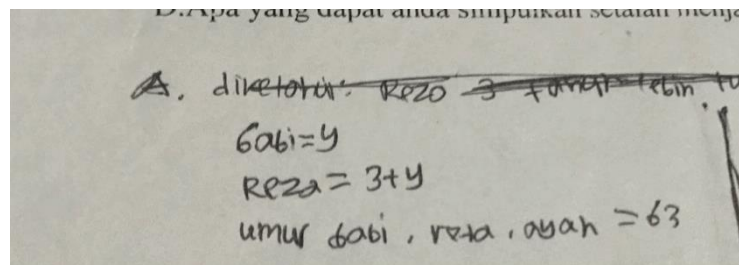 D.Apa yang dapat anda simpulkan setelah menja
A. diketahui: Reza 3 tahun lebih tu
Gabi=y
Reza = 3+y
umur Gabi, reza, ayah = 63